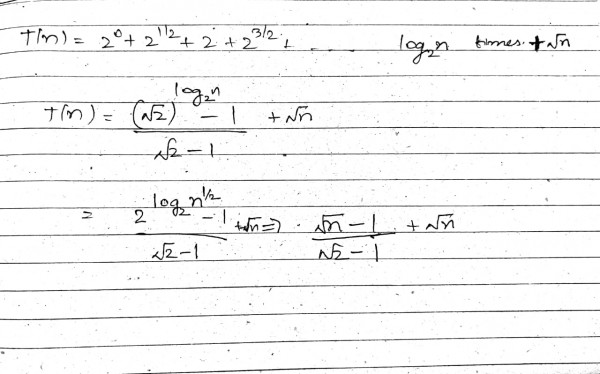 T(n) = 2^0 + 2^{1/2} + 2 + 2^{3/2} + .... log₂n times. + √n
T(n) = ((√2)^{log₂n} - 1)/(√2 - 1) + √n
= (2^{log₂n^{1/2}} - 1)/(√2 - 1) + √n ⇒ (√n - 1)/(√2 - 1) + √n